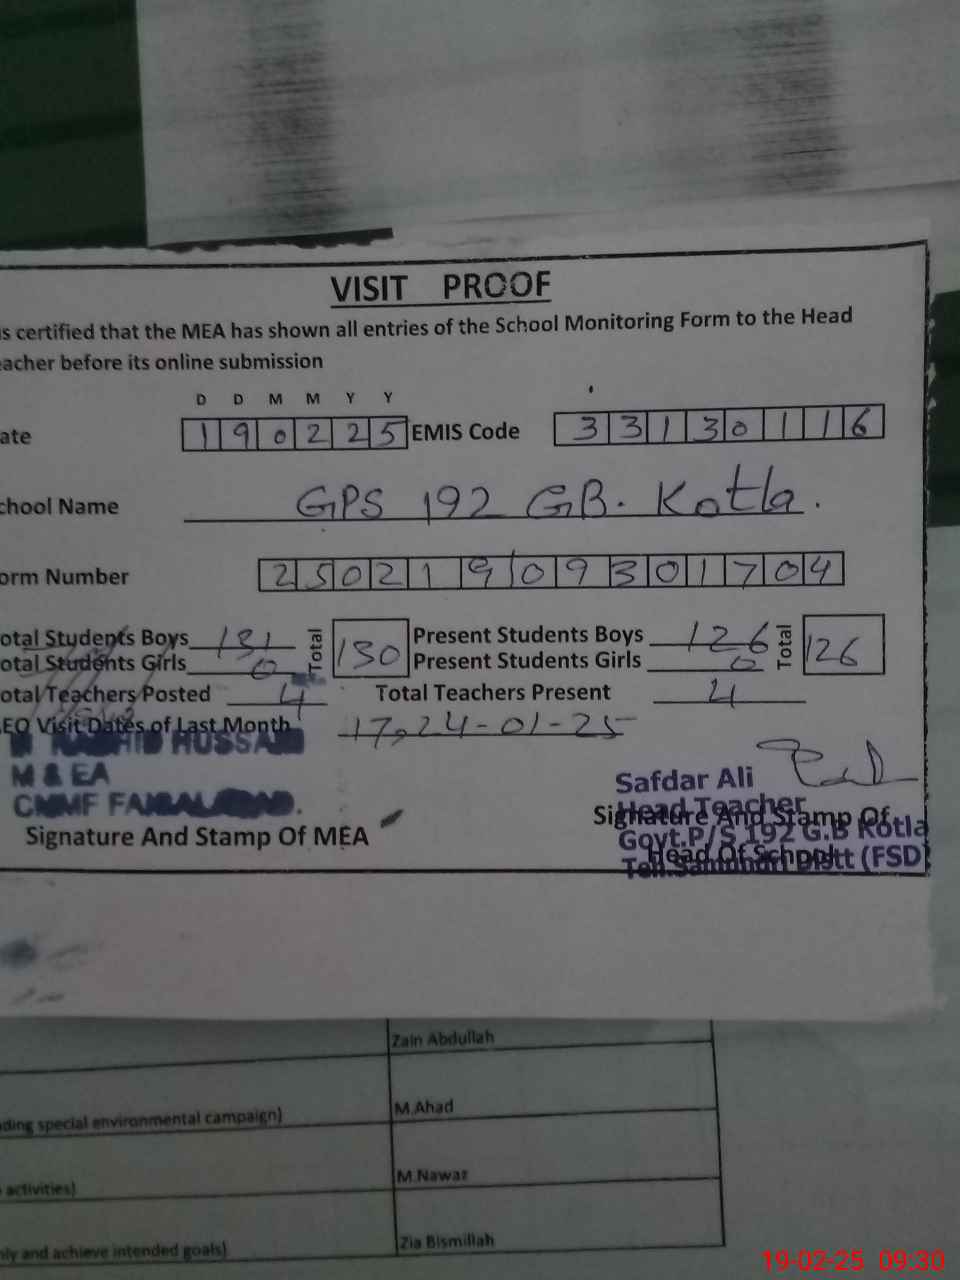 VISIT PROOF
is certified that the MEA has shown all entries of the School Monitoring Form to the Head
eacher before its online submission
D D M M Y Y
ate 1 9 0 2 2 5 EMIS Code 3 3 1 3 0 1 1 6
chool Name GPS 192 GB. Kotla.
orm Number 2 5 0 2 1 9 0 9 3 0 1 7 0 4
otal Students Boys 131 Total 130 Present Students Boys 126 Total 126
otal Students Girls 0 Present Students Girls 0
otal Teachers Posted 4 Total Teachers Present 4
EO Visit Dates of Last Month 17,24-01-25
HUSSAIN
M & EA
Signature And Stamp Of MEA
Safdar Ali
Head Teacher
Signature And Stamp Of
Govt.P/S 192 G.B Kotla
Head Of School
Distt (FSD)
Zain Abdullah
ding special environmental campaign) M.Ahad
activities) M.Nawaz
nly and achieve intended goals) Zia Bismillah
19-02-25 09:30